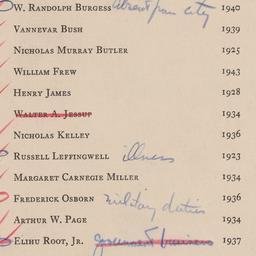 W. RANDOLPH BURGESS absent from city 1940
VANNEVAR BUSH 1939
NICHOLAS MURRAY BUTLER 1925
WILLIAM FREW 1943
HENRY JAMES 1928
WALTER A. JESSUP 1934
NICHOLAS KELLEY 1936
RUSSELL LEFFINGWELL illness 1923
MARGARET CARNEGIE MILLER 1934
FREDERICK OSBORN military duties 1936
ARTHUR W. PAGE 1934
ELIHU ROOT, JR. government business 1937